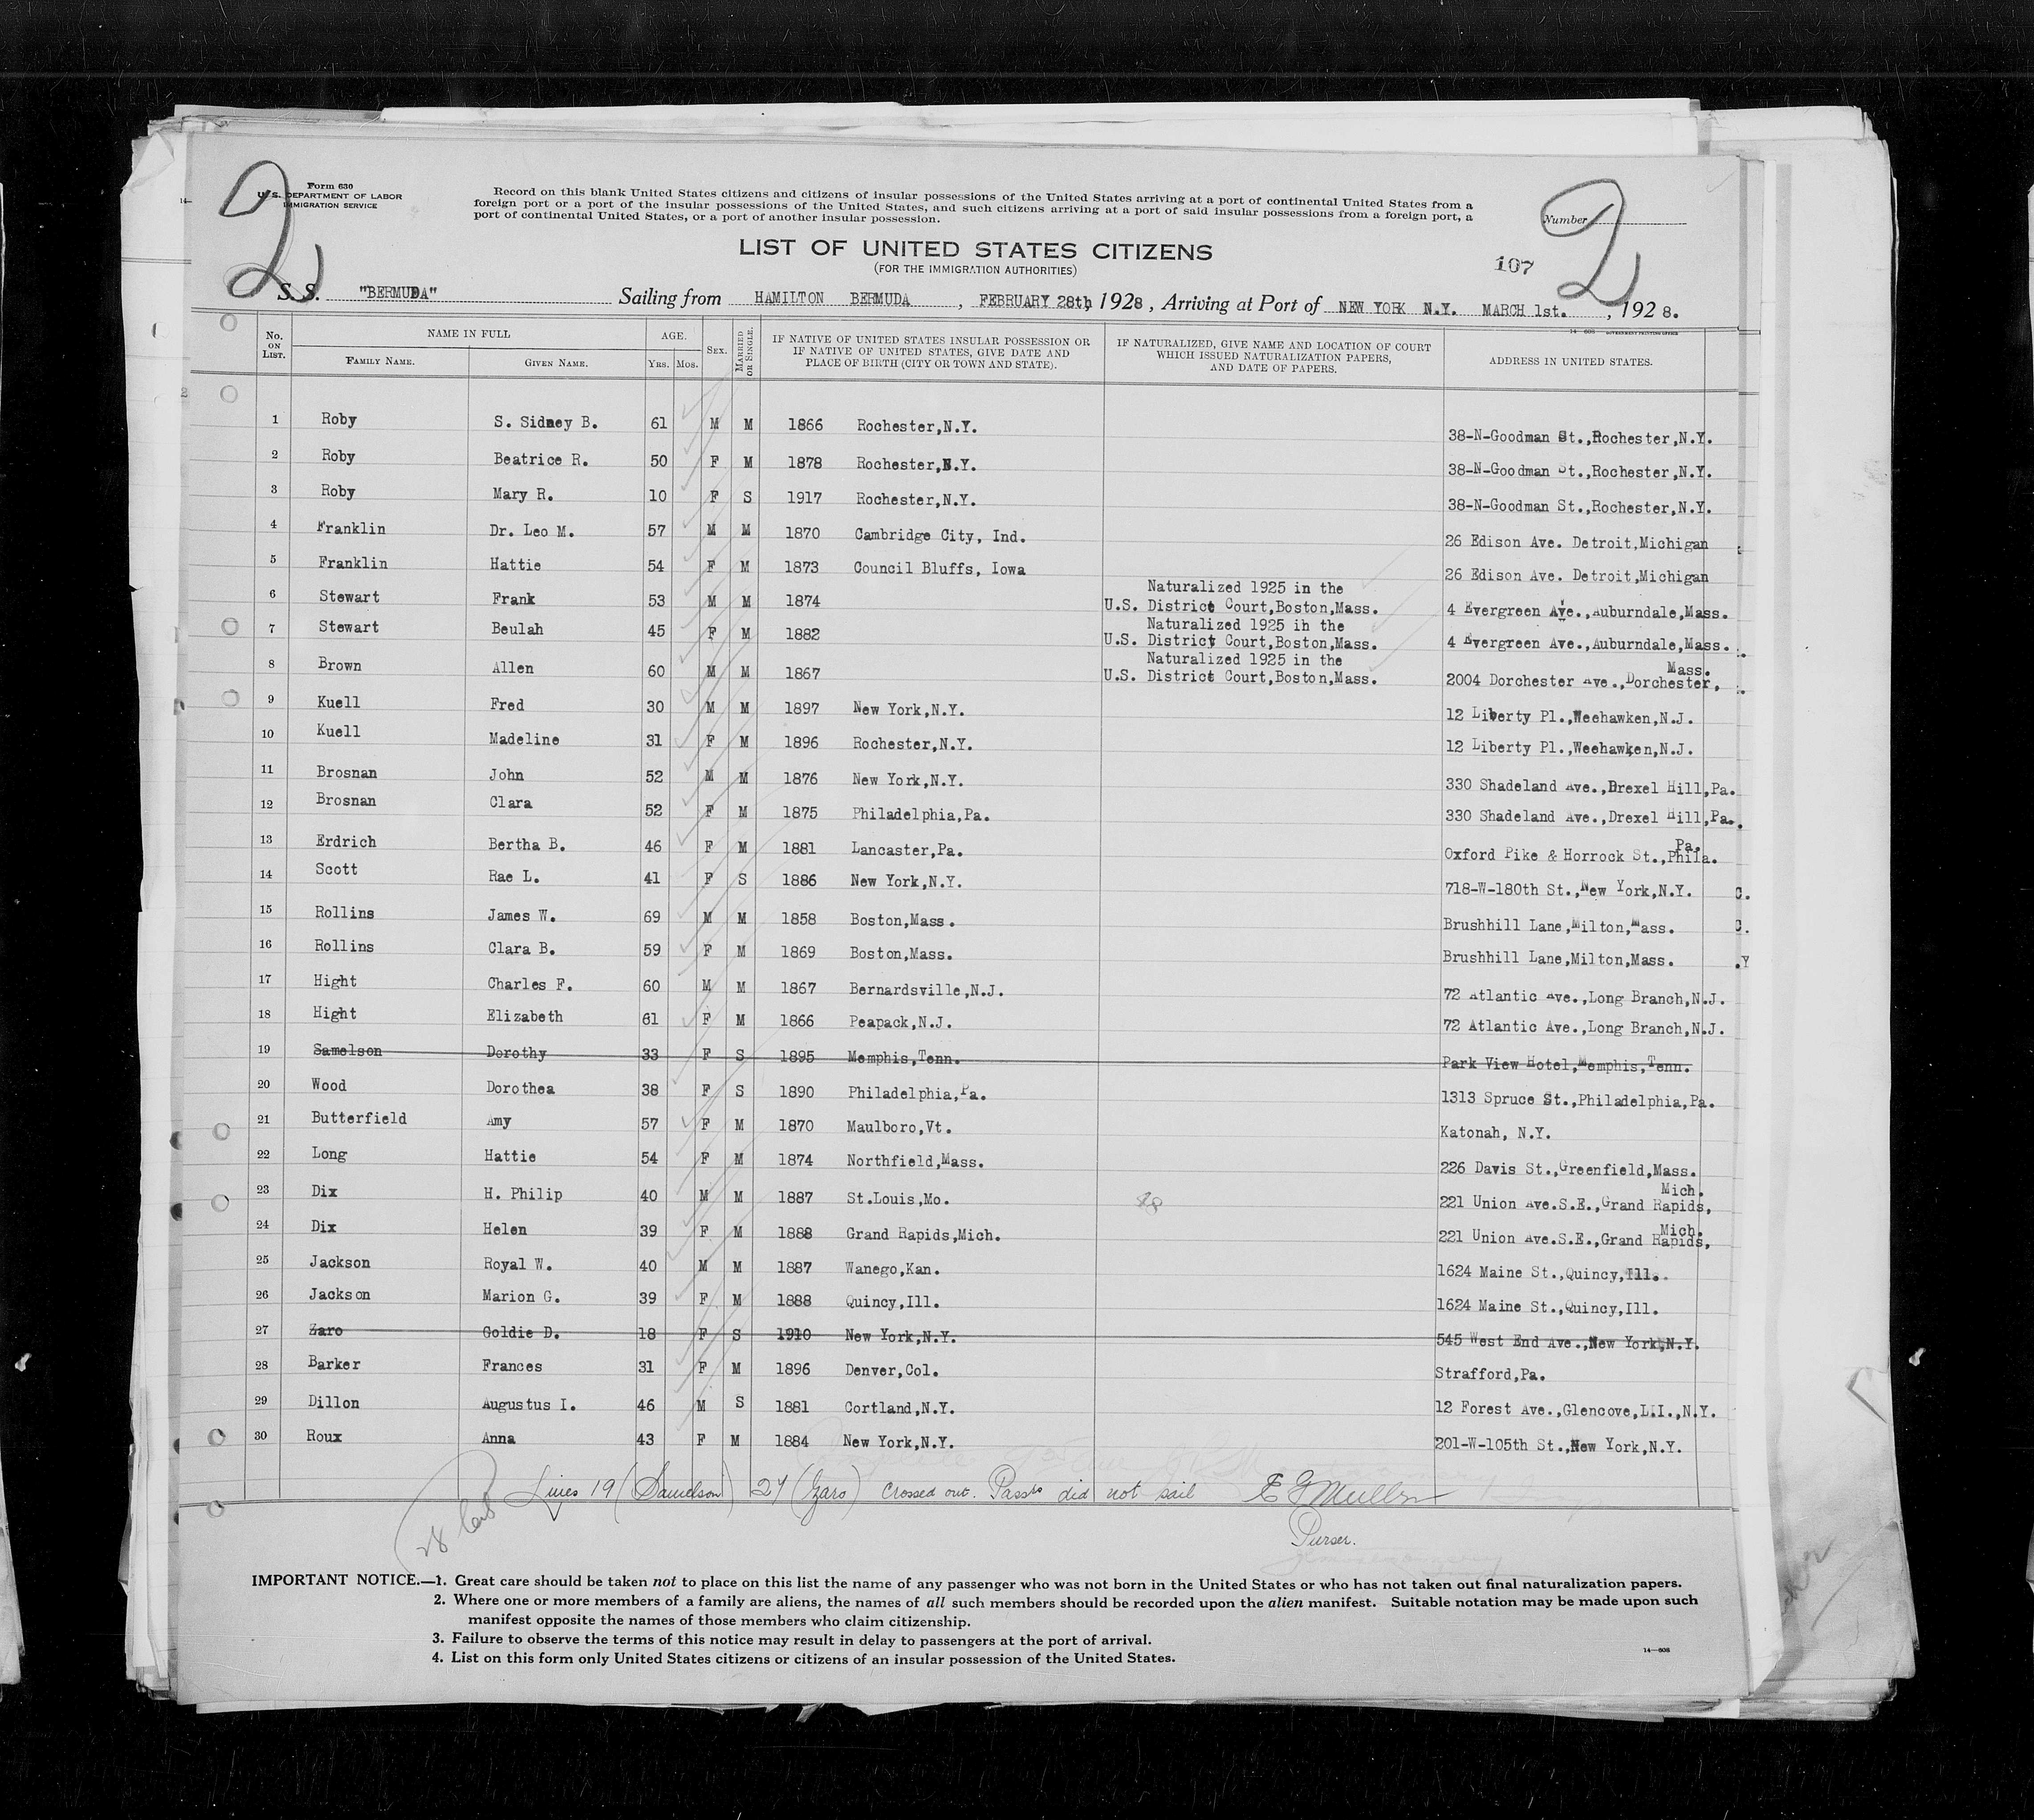 Form 630
U. S. DEPARTMENT OF LABOR
IMMIGRATION SERVICE
2
Record on this blank United States citizens and citizens of insular possessions of the United States arriving at a port of continental United States from a
foreign port or a port of the insular possessions of the United States, and such citizens arriving at a port of said insular possessions from a foreign port, a
port of continental United States, or a port of another insular possession.
Number
2
LIST OF UNITED STATES CITIZENS
(FOR THE IMMIGRATION AUTHORITIES)
107
S. S. "BERMUDA" Sailing from HAMILTON BERMUDA, FEBRUARY 28th, 1928, Arriving at Port of NEW YORK N.Y. MARCH 1st., 1928.
14—608 GOVERNMENT PRINTING OFFICE
No. ON LIST. NAME IN FULL FAMILY NAME. GIVEN NAME. AGE. YRS. MOS. SEX. MARRIED OR SINGLE. IF NATIVE OF UNITED STATES INSULAR POSSESSION OR IF NATIVE OF UNITED STATES, GIVE DATE AND PLACE OF BIRTH (CITY OR TOWN AND STATE). IF NATURALIZED, GIVE NAME AND LOCATION OF COURT WHICH ISSUED NATURALIZATION PAPERS, AND DATE OF PAPERS. ADDRESS IN UNITED STATES.
1 Roby S. Sidney B. 61 M M 1866 Rochester,N.Y. 38-N-Goodman St.,Rochester,N.Y.
2 Roby Beatrice R. 50 F M 1878 Rochester,N.Y. 38-N-Goodman St.,Rochester,N.Y.
3 Roby Mary R. 10 F S 1917 Rochester,N.Y. 38-N-Goodman St.,Rochester,N.Y.
4 Franklin Dr. Leo M. 57 M M 1870 Cambridge City, Ind. 26 Edison Ave. Detroit,Michigan
5 Franklin Hattie 54 F M 1873 Council Bluffs, Iowa 26 Edison Ave. Detroit,Michigan
6 Stewart Frank 53 M M 1874 Naturalized 1925 in the U.S. District Court,Boston,Mass. 4 Evergreen Ave.,Auburndale,Mass.
7 Stewart Beulah 45 F M 1882 Naturalized 1925 ih the U.S. District Court,Boston,Mass. 4 Evergreen Ave.,Auburndale,Mass.
8 Brown Allen 60 M M 1867 Naturalized 1925 in the U.S. District Court,Boston,Mass. 2004 Dorchester Ave.,Dorchester, Mass.
9 Kuell Fred 30 M M 1897 New York,N.Y. 12 Liberty Pl.,Weehawken,N.J.
10 Kuell Madeline 31 F M 1896 Rochester,N.Y. 12 Liberty Pl.,Weehawken,N.J.
11 Brosnan John 52 M M 1876 New York,N.Y. 330 Shadeland Ave.,Drexel Hill,Pa.
12 Brosnan Clara 52 F M 1875 Philadelphia,Pa. 330 Shadeland Ave.,Drexel Hill,Pa.
13 Erdrich Bertha B. 46 F M 1881 Lancaster,Pa. Oxford Pike & Horrock St.,Phila. Pa.
14 Scott Rae L. 41 F S 1886 New York,N.Y. 718-W-180th St.,New York,N.Y.
15 Rollins James W. 69 M M 1858 Boston,Mass. Brushhill Lane,Milton,Mass.
16 Rollins Clara B. 59 F M 1869 Boston,Mass. Brushhill Lane,Milton,Mass.
17 Hight Charles F. 60 M M 1867 Bernardsville,N.J. 72 Atlantic Ave.,Long Branch,N.J.
18 Hight Elizabeth 61 F M 1866 Peapack,N.J. 72 Atlantic Ave.,Long Branch,N.J.
19 Samelson Dorothy 33 F S 1895 Memphis,Tenn. Park View Hotel,Memphis,Tenn.
20 Wood Dorothea 38 F S 1890 Philadelphia,Pa. 1313 Spruce St.,Philadelphia,Pa.
21 Butterfield Amy 57 F M 1870 Maulboro,Vt. Katonah, N.Y.
22 Long Hattie 54 F M 1874 Northfield,Mass. 226 Davis St.,Greenfield,Mass.
23 Dix H. Philip 40 M M 1887 St.Louis,Mo. 28 221 Union Ave.S.E.,Grand Rapids, Mich.
24 Dix Helen 39 F M 1888 Grand Rapids,Mich. 221 Union Ave.S.E.,Grand Rapids, Mich.
25 Jackson Royal W. 40 M M 1887 Wanego,Kan. 1624 Maine St.,Quincy,Ill.
26 Jackson Marion G. 39 F M 1888 Quincy,Ill. 1624 Maine St.,Quincy,Ill.
27 Zaro Goldie D. 18 F S 1910 New York,N.Y. 545 West End Ave.,New York,N.Y.
28 Barker Frances 31 F M 1896 Denver,Col. Strafford,Pa.
29 Dillon Augustus I. 46 M S 1881 Cortland,N.Y. 12 Forest Ave.,Glencove,L.I.,N.Y.
30 Roux Anna 43 F M 1884 New York,N.Y. 201-W-105th St.,New York,N.Y.
Lines 19 (Samelson) 27 (Zaro) crossed out. Passrs did not sail E G Mullen
28
Purser.
IMPORTANT NOTICE.—1. Great care should be taken not to place on this list the name of any passenger who was not born in the United States or who has not taken out final naturalization papers.
2. Where one or more members of a family are aliens, the names of all such members should be recorded upon the alien manifest. Suitable notation may be made upon such
manifest opposite the names of those members who claim citizenship.
3. Failure to observe the terms of this notice may result in delay to passengers at the port of arrival.
4. List on this form only United States citizens or citizens of an insular possession of the United States.
14—608